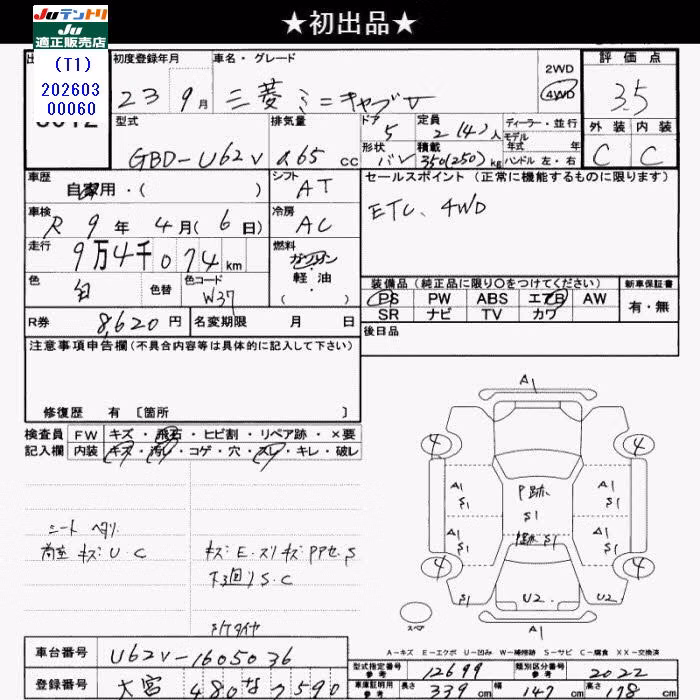 ★初出品★
Juテントリ
Ju
適正販売店
(T1)
202603
00060
初度登録年月
23 9月
車名・グレード
三菱 ミニキャブV
2WD
4WD
評価点
3.5
外装 内装
C C
型式
GBD-U62V
排気量
0.65 cc
ドア
5
定員
2(4)人
ディーラー・並行
モデル
年式 年
形状
バン
積載
350(250)kg
ハンドル 左・右
車歴
自家用・( )
シフト
AT
セールスポイント (正常に機能するものに限ります)
ETC、4WD
車検
R 9年 4月(6日)
冷房
AC
走行
9万4千074km
燃料
ガソリン
軽・油
( )
色
白
色替
色コード
W37
装備品 (純正品に限り○をつけてください)
新車保証書
PS PW ABS エアB AW
SR ナビ TV カワ
有・無
R券 8,620円
名変期限 月 日
後日品
注意事項申告欄(不具合内容等は具体的に記入して下さい)
修復歴 有 [箇所 ]
検査員
記入欄
FW キズ・飛石・ヒビ割・リペア跡・×要
内装 キズ・汚レ・コゲ・穴・スレ・キレ・破レ
シート ヘタリ
荷室 キズ:U.C
キズ:E.スリキズ PPセ.S
下回リS.C
A1
4 4
P跡
S1
A1
S1
A1
S1
A1
S1
A1
S1
S1
4 4
S1
U2
U2
A1
スペア
A-キズ E-エクボ U-凹み W-補修跡 S-サビ C-腐食 XX-交換済
車台番号
U62V-1605036
型式指定番号
参考
12699
類別区分番号
参考
2022
登録番号
大宮 480 な 7590
車庫証明用
参考
長さ 339 cm 幅 147 cm 高さ 178 cm